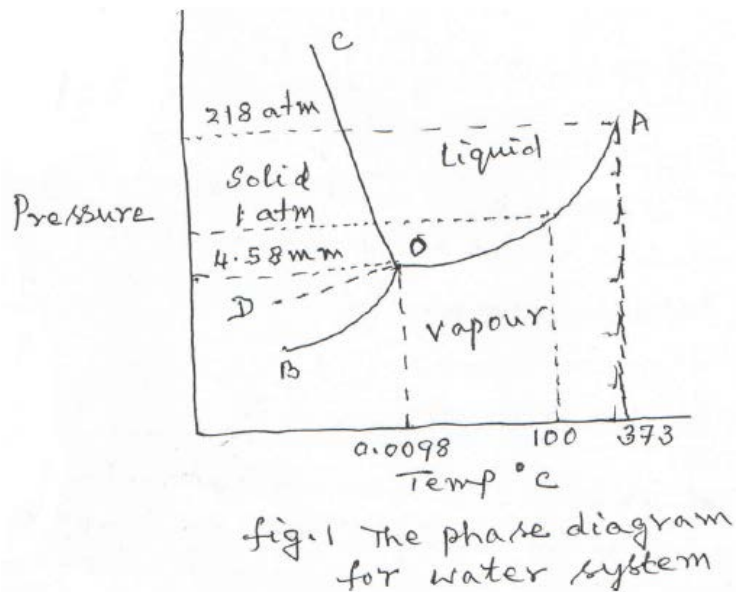 C
218 atm
A
Liquid
Solid
Pressure
1 atm
O
4.58mm
D
Vapour
B
0.0098
100
373
Temp °C
fig.1 The phase diagram
for water system